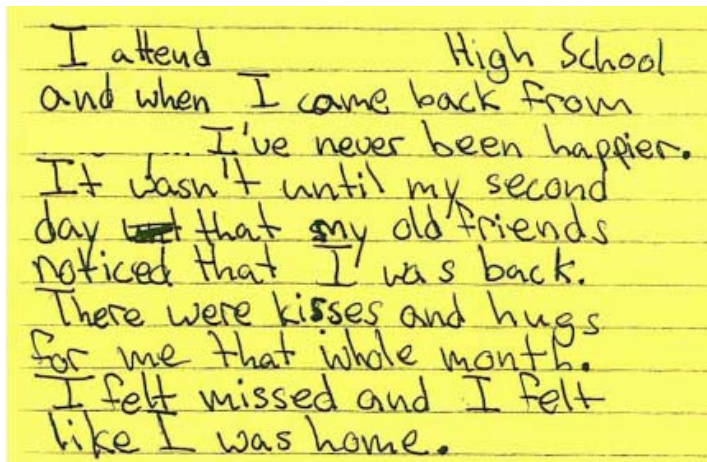 I attend High School
and when I came back from
... I've never been happier.
It wasn't until my second
day that my old friends
noticed that I was back.
There were kisses and hugs
for me that whole month.
I felt missed and I felt
like I was home.